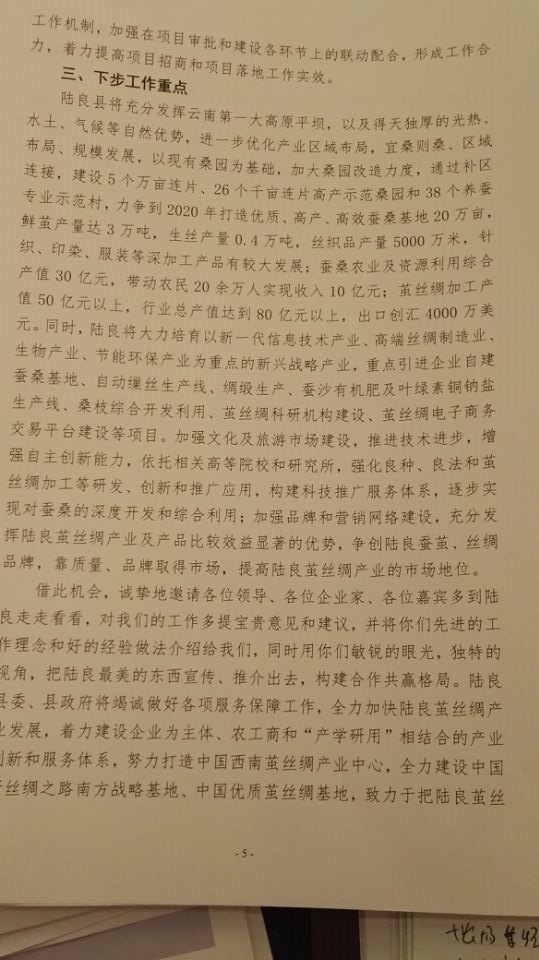 工作机制，加强在项目审批和建设各环节上的联动配合，形成工作合
力，着力提高项目招商和项目落地工作实效。
三、下步工作重点
陆良县将充分发挥云南第一大高原平坝，以及得天独厚的光热、
水土、气候等自然优势，进一步优化产业区域布局，宜桑则桑、区域
布局、规模发展，以现有桑园为基础，加大桑园改造力度，通过补区
连接，建设5个万亩连片、26个千亩连片高产示范桑园和38个养蚕
专业示范村，力争到2020年打造优质、高产、高效蚕桑基地20万亩，
鲜茧产量达3万吨，生丝产量0.4万吨，丝织品产量5000万米，针
织、印染、服装等深加工产品有较大发展；蚕桑农业及资源利用综合
产值30亿元，带动农民20余万人实现收入10亿元；茧丝绸加工产
值50亿元以上，行业总产值达到80亿元以上，出口创汇4000万美
元。同时，陆良将大力培育以新一代信息技术产业、高端丝绸制造业、
生物产业、节能环保产业为重点的新兴战略产业，重点引进企业自建
蚕桑基地、自动缫丝生产线、绸缎生产、蚕沙有机肥及叶绿素铜钠盐
生产线、桑枝综合开发利用、茧丝绸科研机构建设、茧丝绸电子商务
交易平台建设等项目。加强文化及旅游市场建设，推进技术进步，增
强自主创新能力，依托相关高等院校和研究所，强化良种、良法和茧
丝绸加工等研发、创新和推广应用，构建科技推广服务体系，逐步实
现对蚕桑的深度开发和综合利用；加强品牌和营销网络建设，充分发
挥陆良茧丝绸产业及产品比较效益显著的优势，争创陆良蚕茧、丝绸
品牌，靠质量、品牌取得市场，提高陆良茧丝绸产业的市场地位。
借此机会，诚挚地邀请各位领导、各位企业家、各位嘉宾多到陆
良走走看看，对我们的工作多提宝贵意见和建议，并将你们先进的工
作理念和好的经验做法介绍给我们，同时用你们敏锐的眼光，独特的
视角，把陆良最美的东西宣传、推介出去，构建合作共赢格局。陆良
县委、县政府将竭诚做好各项服务保障工作，全力加快陆良茧丝绸产
业发展，着力建设企业为主体、农工商和“产学研用”相结合的产业
创新和服务体系，努力打造中国西南茧丝绸产业中心，全力建设中国
丝绸之路南方战略基地、中国优质茧丝绸基地，致力于把陆良茧丝
-5-